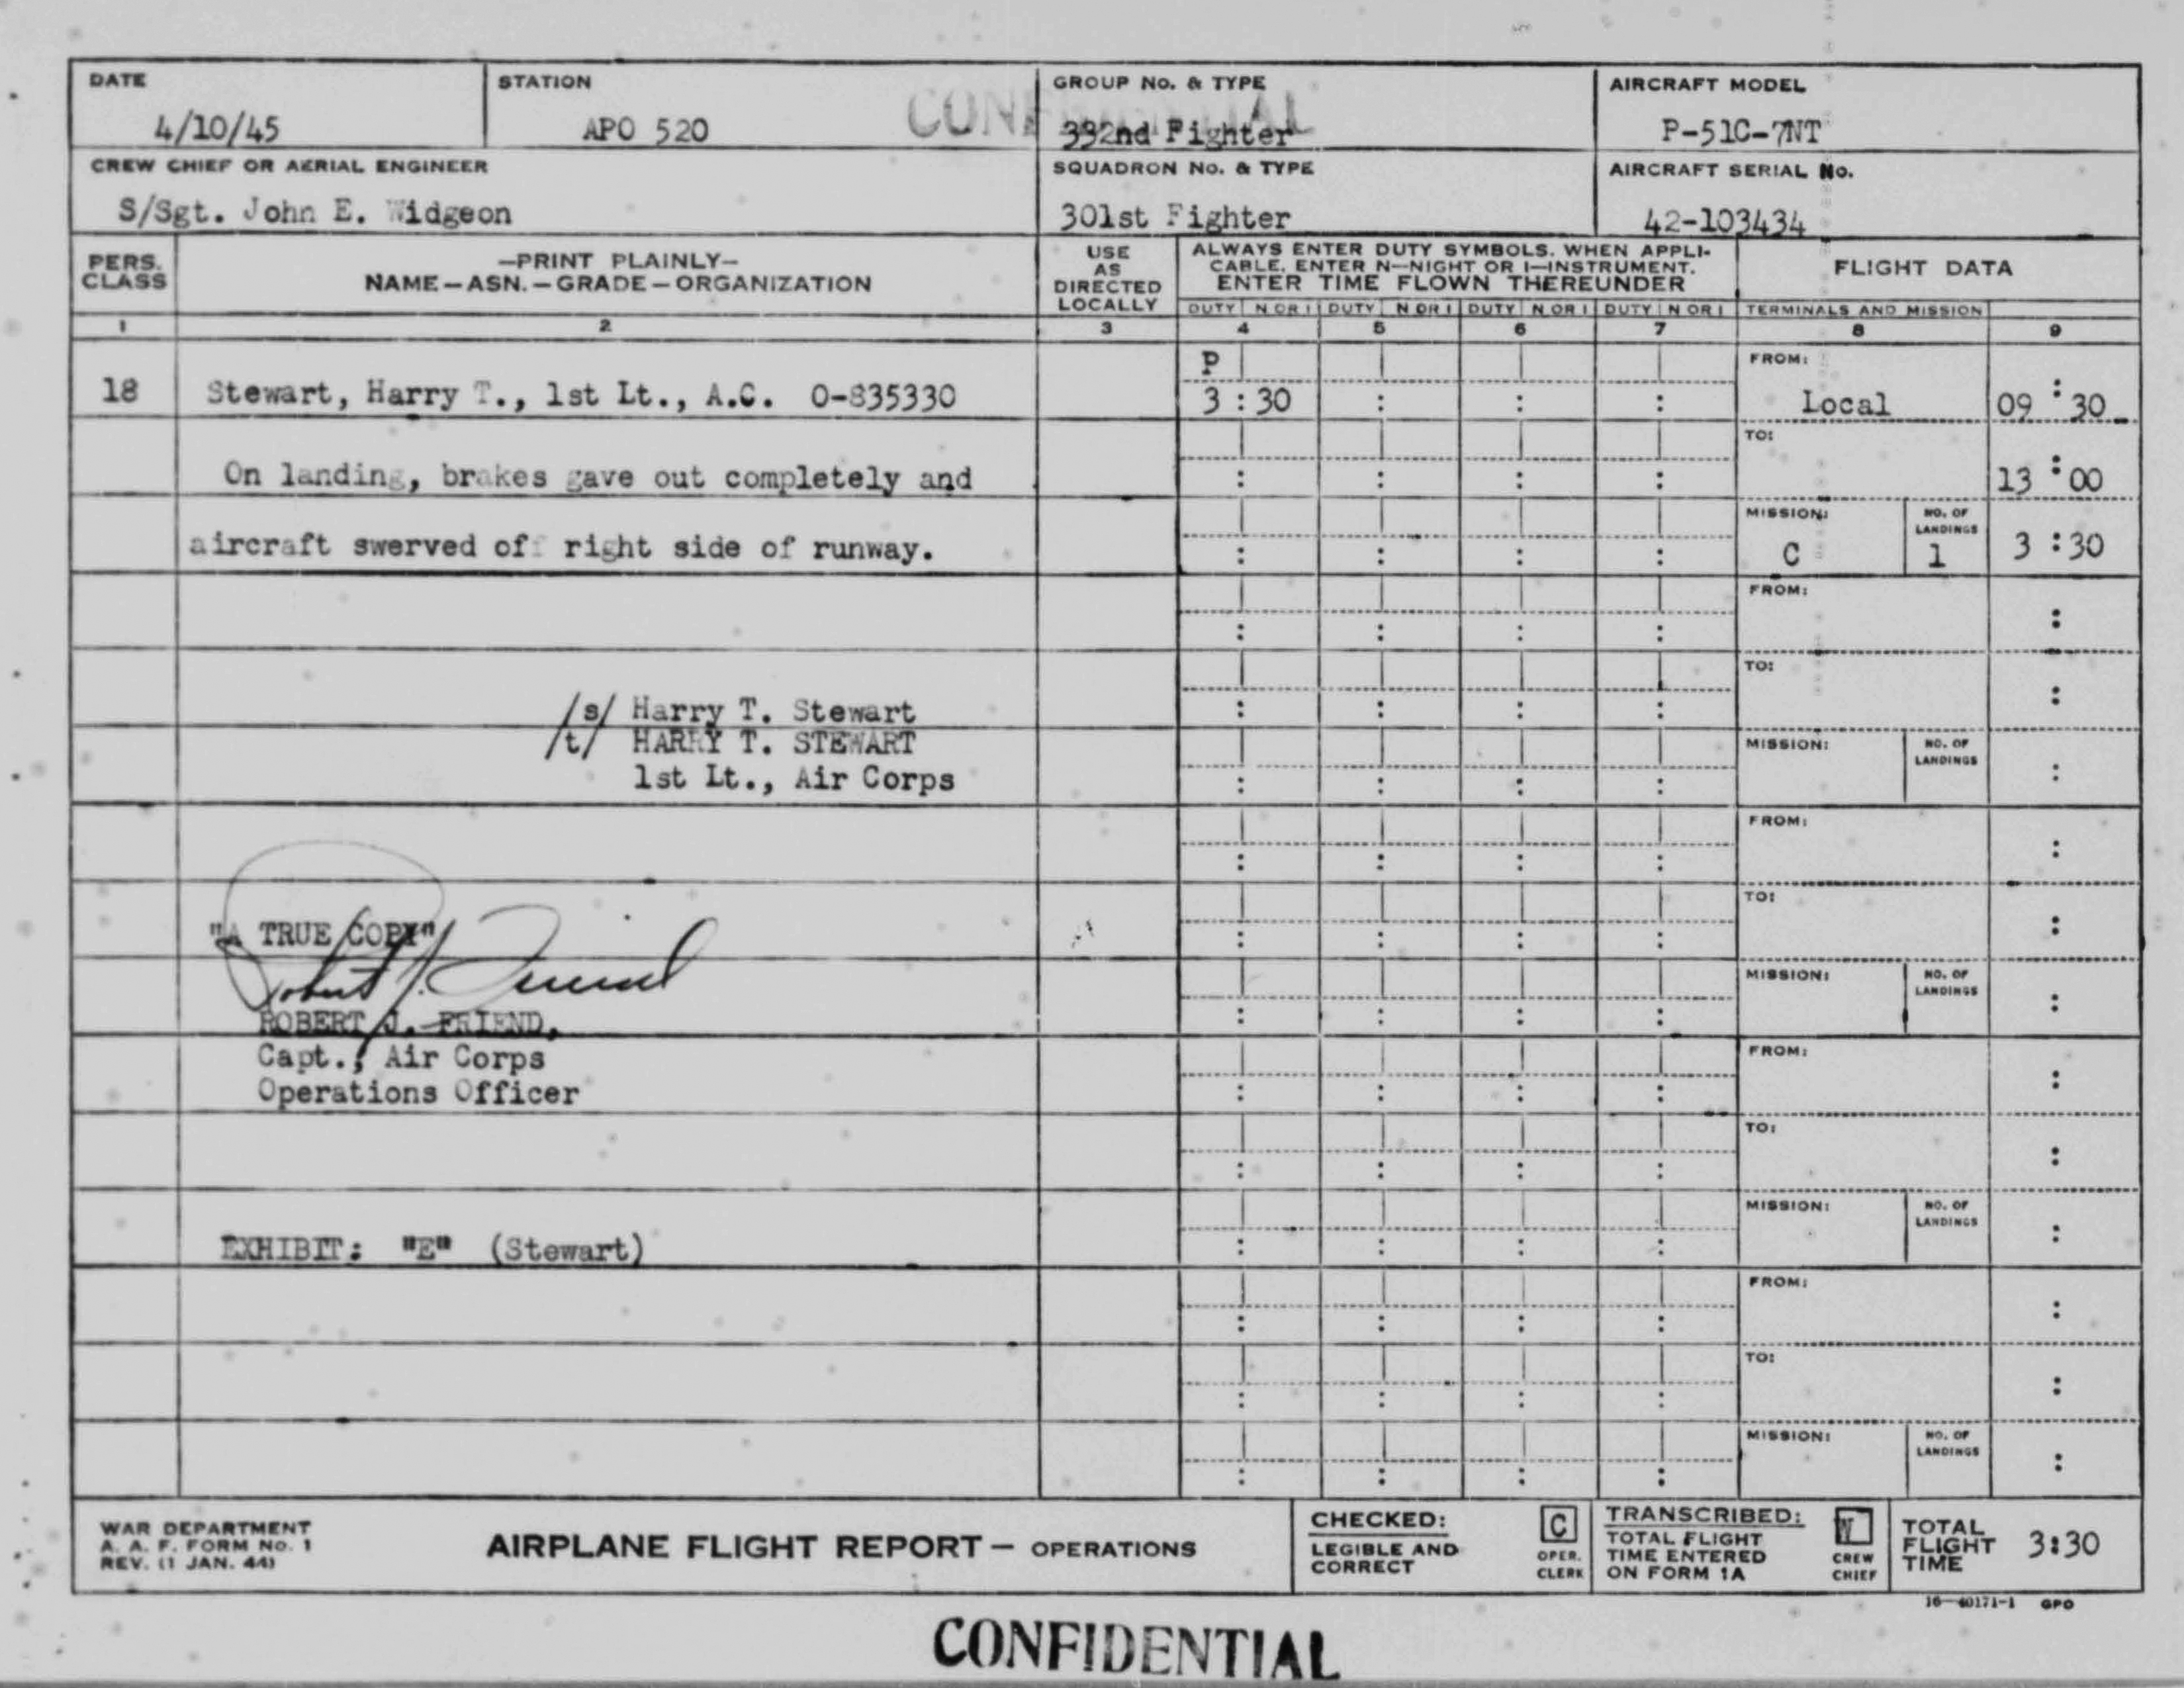 DATE
4/10/45
STATION
APO 520
CONFIDENTIAL
GROUP No. & TYPE
332nd Fighter
AIRCRAFT MODEL
P-51C-7NT
CREW CHIEF OR AERIAL ENGINEER
S/Sgt. John E. Widgeon
SQUADRON No. & TYPE
301st Fighter
AIRCRAFT SERIAL No.
42-103434
PERS. CLASS
—PRINT PLAINLY—
NAME—ASN.—GRADE—ORGANIZATION
USE
AS
DIRECTED
LOCALLY
ALWAYS ENTER DUTY SYMBOLS. WHEN APPLI-
CABLE, ENTER N—NIGHT OR I—INSTRUMENT.
ENTER TIME FLOWN THEREUNDER
FLIGHT DATA
DUTY N OR I DUTY N OR I DUTY N OR I DUTY N OR I TERMINALS AND MISSION
1 2 3 4 5 6 7 8 9
P
FROM:
18 Stewart, Harry T., 1st Lt., A.C. O-835330 3:30 : : : Local 09:30
TO:
On landing, brakes gave out completely and : : : : 13:00
MISSION: NO. OF LANDINGS
aircraft swerved off right side of runway. : : : : C 1 3:30
FROM:
: : : : :
TO:
/s/ Harry T. Stewart : : : : :
/t/ HARRY T. STEWART
MISSION: NO. OF LANDINGS
1st Lt., Air Corps : : : : :
FROM:
: : : : :
TO:
"A TRUE COPY" : : : : :
Robert J. Friend
MISSION: NO. OF LANDINGS
ROBERT J. FRIEND, : : : : :
Capt., Air Corps
FROM:
Operations Officer : : : : :
TO:
: : : : :
MISSION: NO. OF LANDINGS
EXHIBIT: "E" (Stewart) : : : : :
FROM:
: : : : :
TO:
: : : : :
MISSION: NO. OF LANDINGS
: : : : :
WAR DEPARTMENT
A. A. F. FORM No. 1
REV. (1 JAN. 44)
AIRPLANE FLIGHT REPORT — OPERATIONS
CHECKED:
LEGIBLE AND
CORRECT
C
OPER.
CLERK
TRANSCRIBED:
TOTAL FLIGHT
TIME ENTERED
ON FORM 1A
W
CREW
CHIEF
TOTAL
FLIGHT
TIME
3:30
16—40171-1 GPO
CONFIDENTIAL